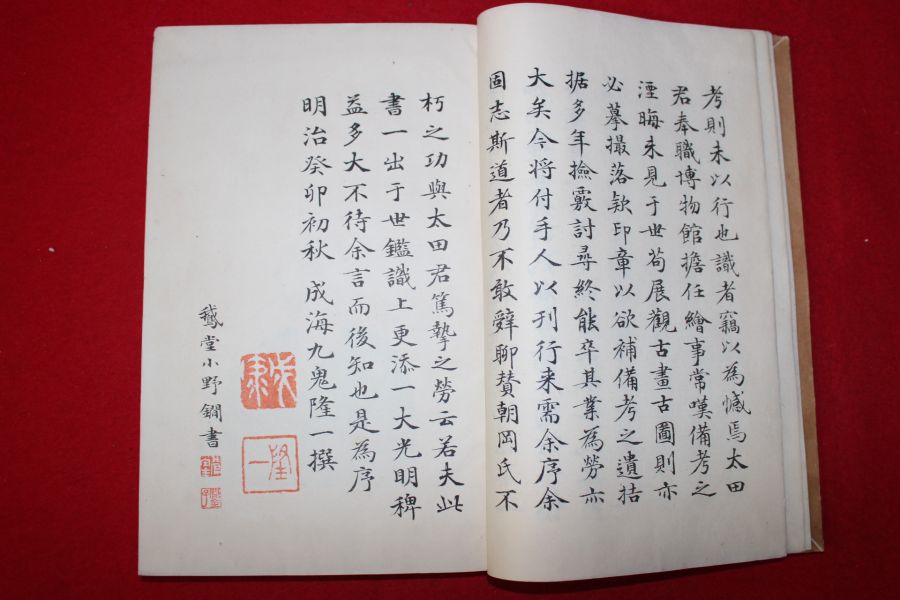 考則未以行也識者竊以為憾焉太田
君奉職博物館擔任繪事常嘆備考之
湮晦未見于世苟展觀古畫古圖則亦
必摹撮落款印章以欲補備考之遺拮
据多年撿覈討尋終能卒其業為勞亦
大矣今將付手人以刊行来需余序余
固志斯道者乃不敢辭聊賛朝岡氏不
朽之功與太田君篤摯之勞云若夫此
書一出于世鑑識上更添一大光明稗
益多大不待余言而後知也是為序
明治癸卯初秋 成海九鬼隆一撰
鵞堂小野鐗書
隆一